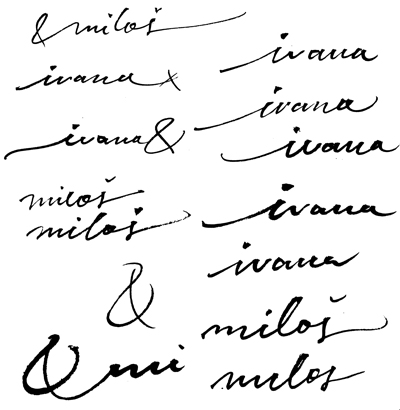 & miloš
ivana x
ivana &
miloš
miloš
&
& mi
ivana
ivana
ivana
ivana
ivana
miloš
milos